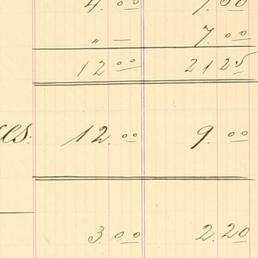 4.00 7.00
" — 7.00
12 00 21 25
12.00 9.00
3.00 2.20